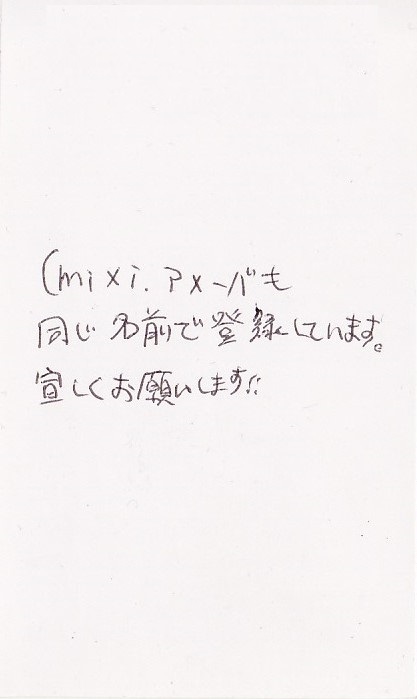 (mixi.アメーバも
同じ名前で登録しています。
宜しくお願いします!!